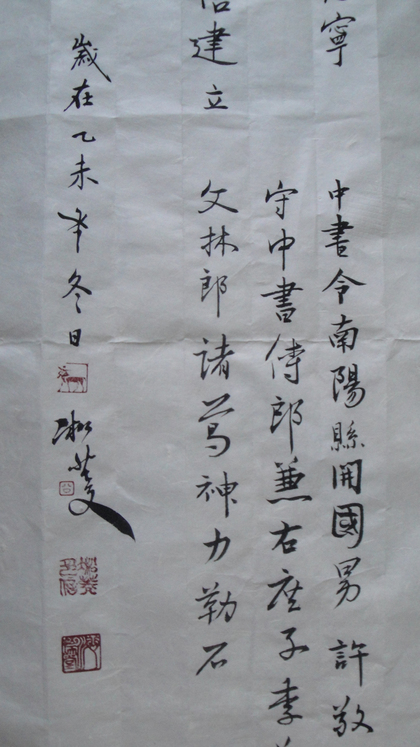 寧 中書令南陽縣開國男許敬
守中書傳郎兼右庶子李
建立 文林郎諸葛神力勒石
歲在乙未年冬日